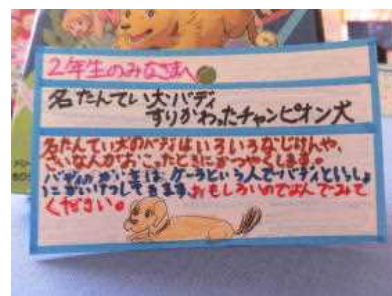 2年生のみなさまへ
名たんてい犬バディ
すりかわったチャンピオン犬
名たんてい犬のバディはいろいろなじけんや、
さいなんがおこったときにかつやくします。
バディのかいぬしは、ケーラという人でバディといっしょ
にかいけつしていきます。おもしろいのでよんでみて
ください。